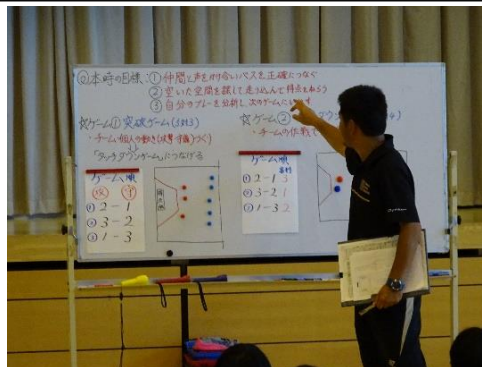 ◎本時の目標:①仲間と声をかけ合いパスを正確につなぐ
②空いた空間を探して走り込んで得点をねらう
③自分のプレーを分析し、次のゲームに
☆ゲーム① 突破ゲーム(3対3)
・チーム・個人の動き(攻撃・守備)づくり
「タッチダウンゲーム」につなげる
ゲーム順
攻 守
① 2-1
② 3-2
③ 1-3
☆ゲーム②
・チームの作戦で
ゲーム順
審判
① 2-1 3
② 3-2 1
③ 1-3 2